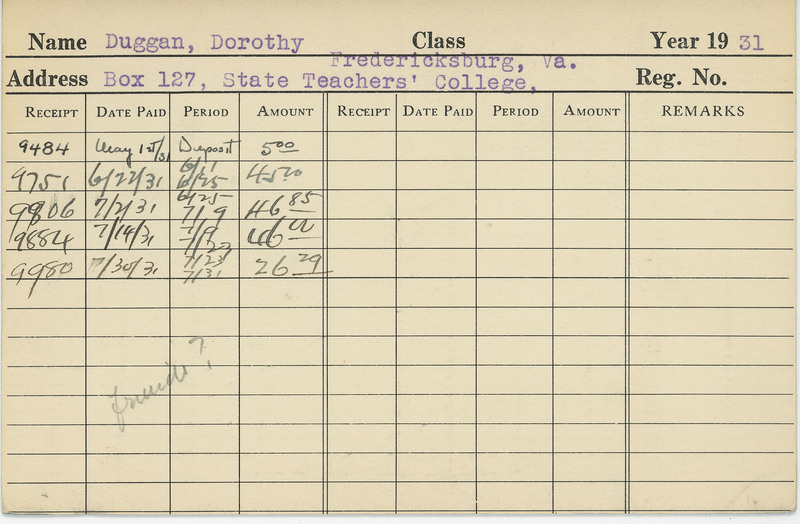 Name Duggan, Dorothy Class Year 19 31
Fredericksburg, Va.
Address Box 127, State Teachers' College, Reg. No.
RECEIPT DATE PAID PERIOD AMOUNT RECEIPT DATE PAID PERIOD AMOUNT REMARKS
9484 May 1st/31 Deposit 5 00
9751 6/22/31 6/11 6/25 45 00
9806 7/2/31 6/25 7/9 46 85
9884 7/14/31 7/9 7/23 46 00
9980 7/30/31 7/23 7/31 26 29